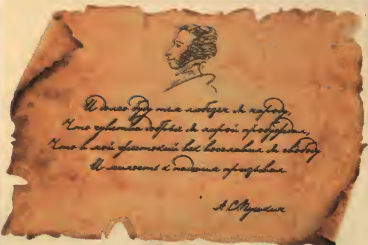 И долго буду тем любезен я народу,
Что чувства добрые я лирой пробуждал,
Что в мой жестокий век восславил я свободу
И милость к падшим призывал.
А.С.Пушкин